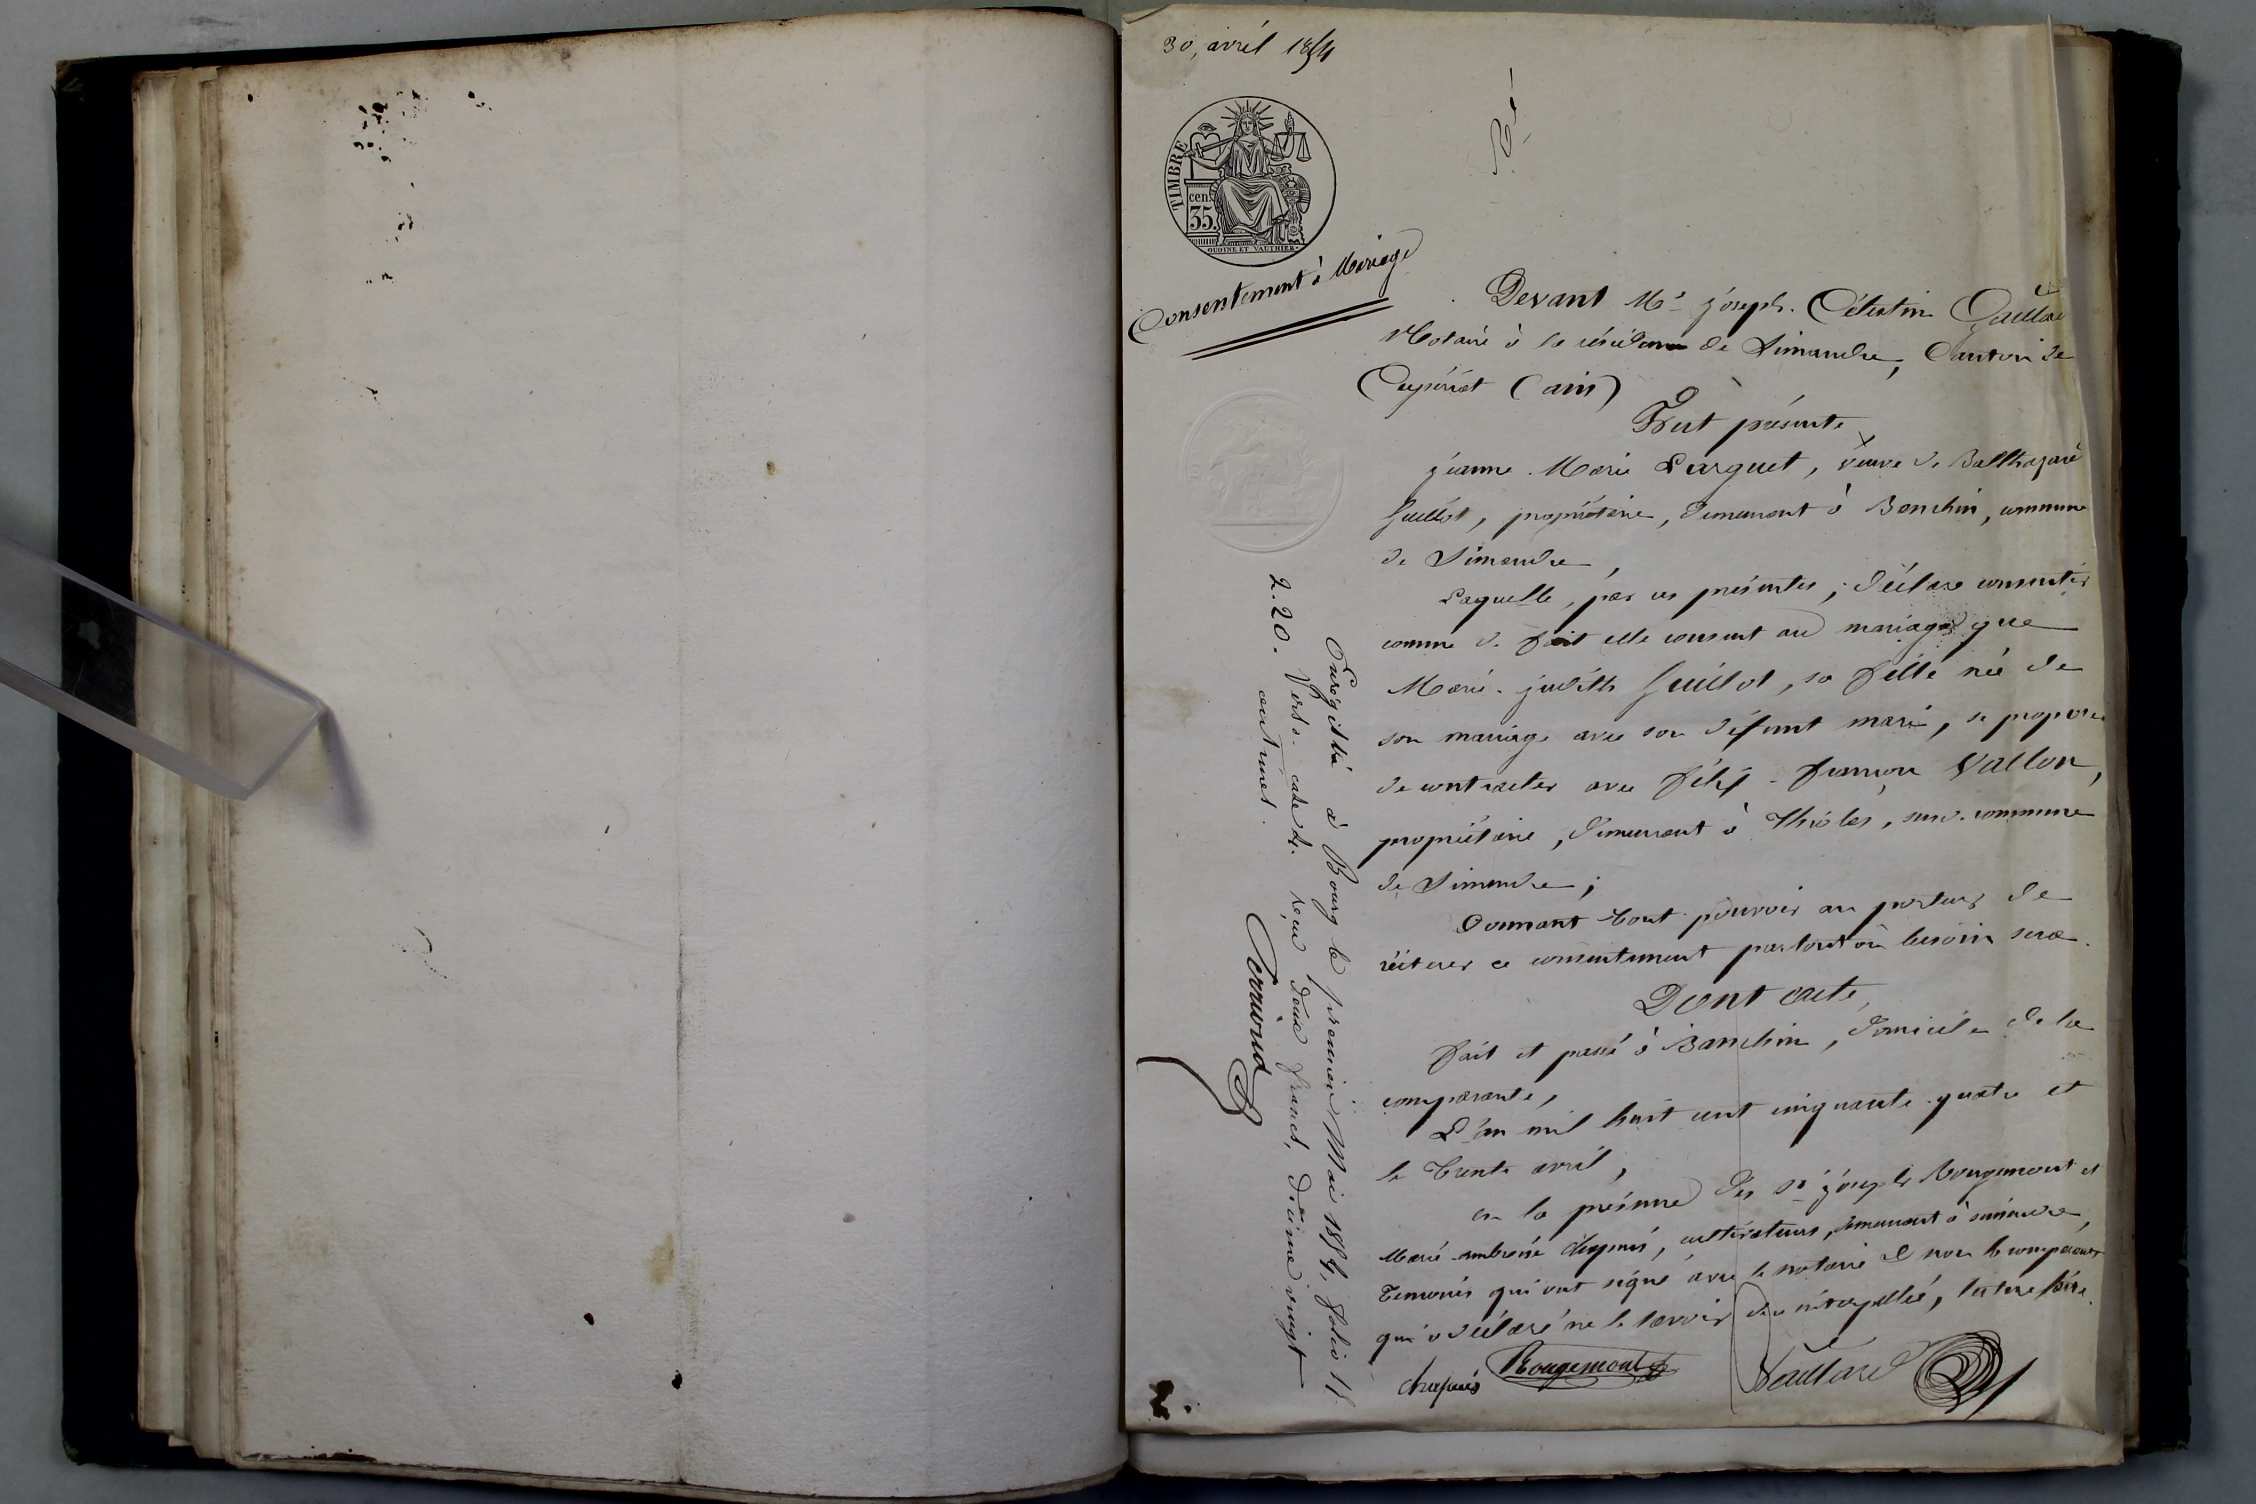 30, avril 1854
TIMBRE
cen.
35.
OUDINÉ ET VAUTHIER.
Consentement à Mariage
Devant Me joseph. Célestin Gaillard
Notaire à la résidence de Simandre, Canton de
Ceyzériat (ain)
Fut présente
jeanne Marie Larguet, veuve de Balthazard
Guillot, propriétaire, demeurant à Banchin, commune
de Simandre,
Laquelle, par ces présentes, déclare consentir
comme de fait elle consent au mariage que
Marie judith Guillot, sa fille née de
son mariage avec son défunt mari, se propose
de contracter avec félix françois Vallon,
propriétaire, demeurant à Thioles, susd. commune
de Simandre;
Donnant tout pouvoir au porteur de
réiterer ce consentement partout où besoin sera.
Dont acte,
fait et passé à Banchin, domicile de la
comparante,
L'an mil huit cent cinquante quatre et
le trente avril,
en la présence des srs joseph Rougemont et
Marie ambroise chapuis, cultivateurs, demeurant à simandre,
temoins qui ont signé avec le notaire & non la comparante
qui a déclaré ne le savoir de ce interpellée, lecture faite.
chapuis Rougemont Gaillard
Enregistré à Bourg le premier Mai 1854, folio 11
Verso. case 4. reçu deux francs, décime vingt
centimes.
2.20.